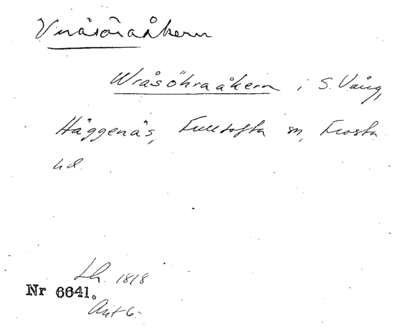 Vråsöraåkern
Wråsöhraåkern i S. Vång,
Häggenäs, Fulltofta sn, Frosta
hd.
Lh. 1818
Nr 6641.
Akt 6.